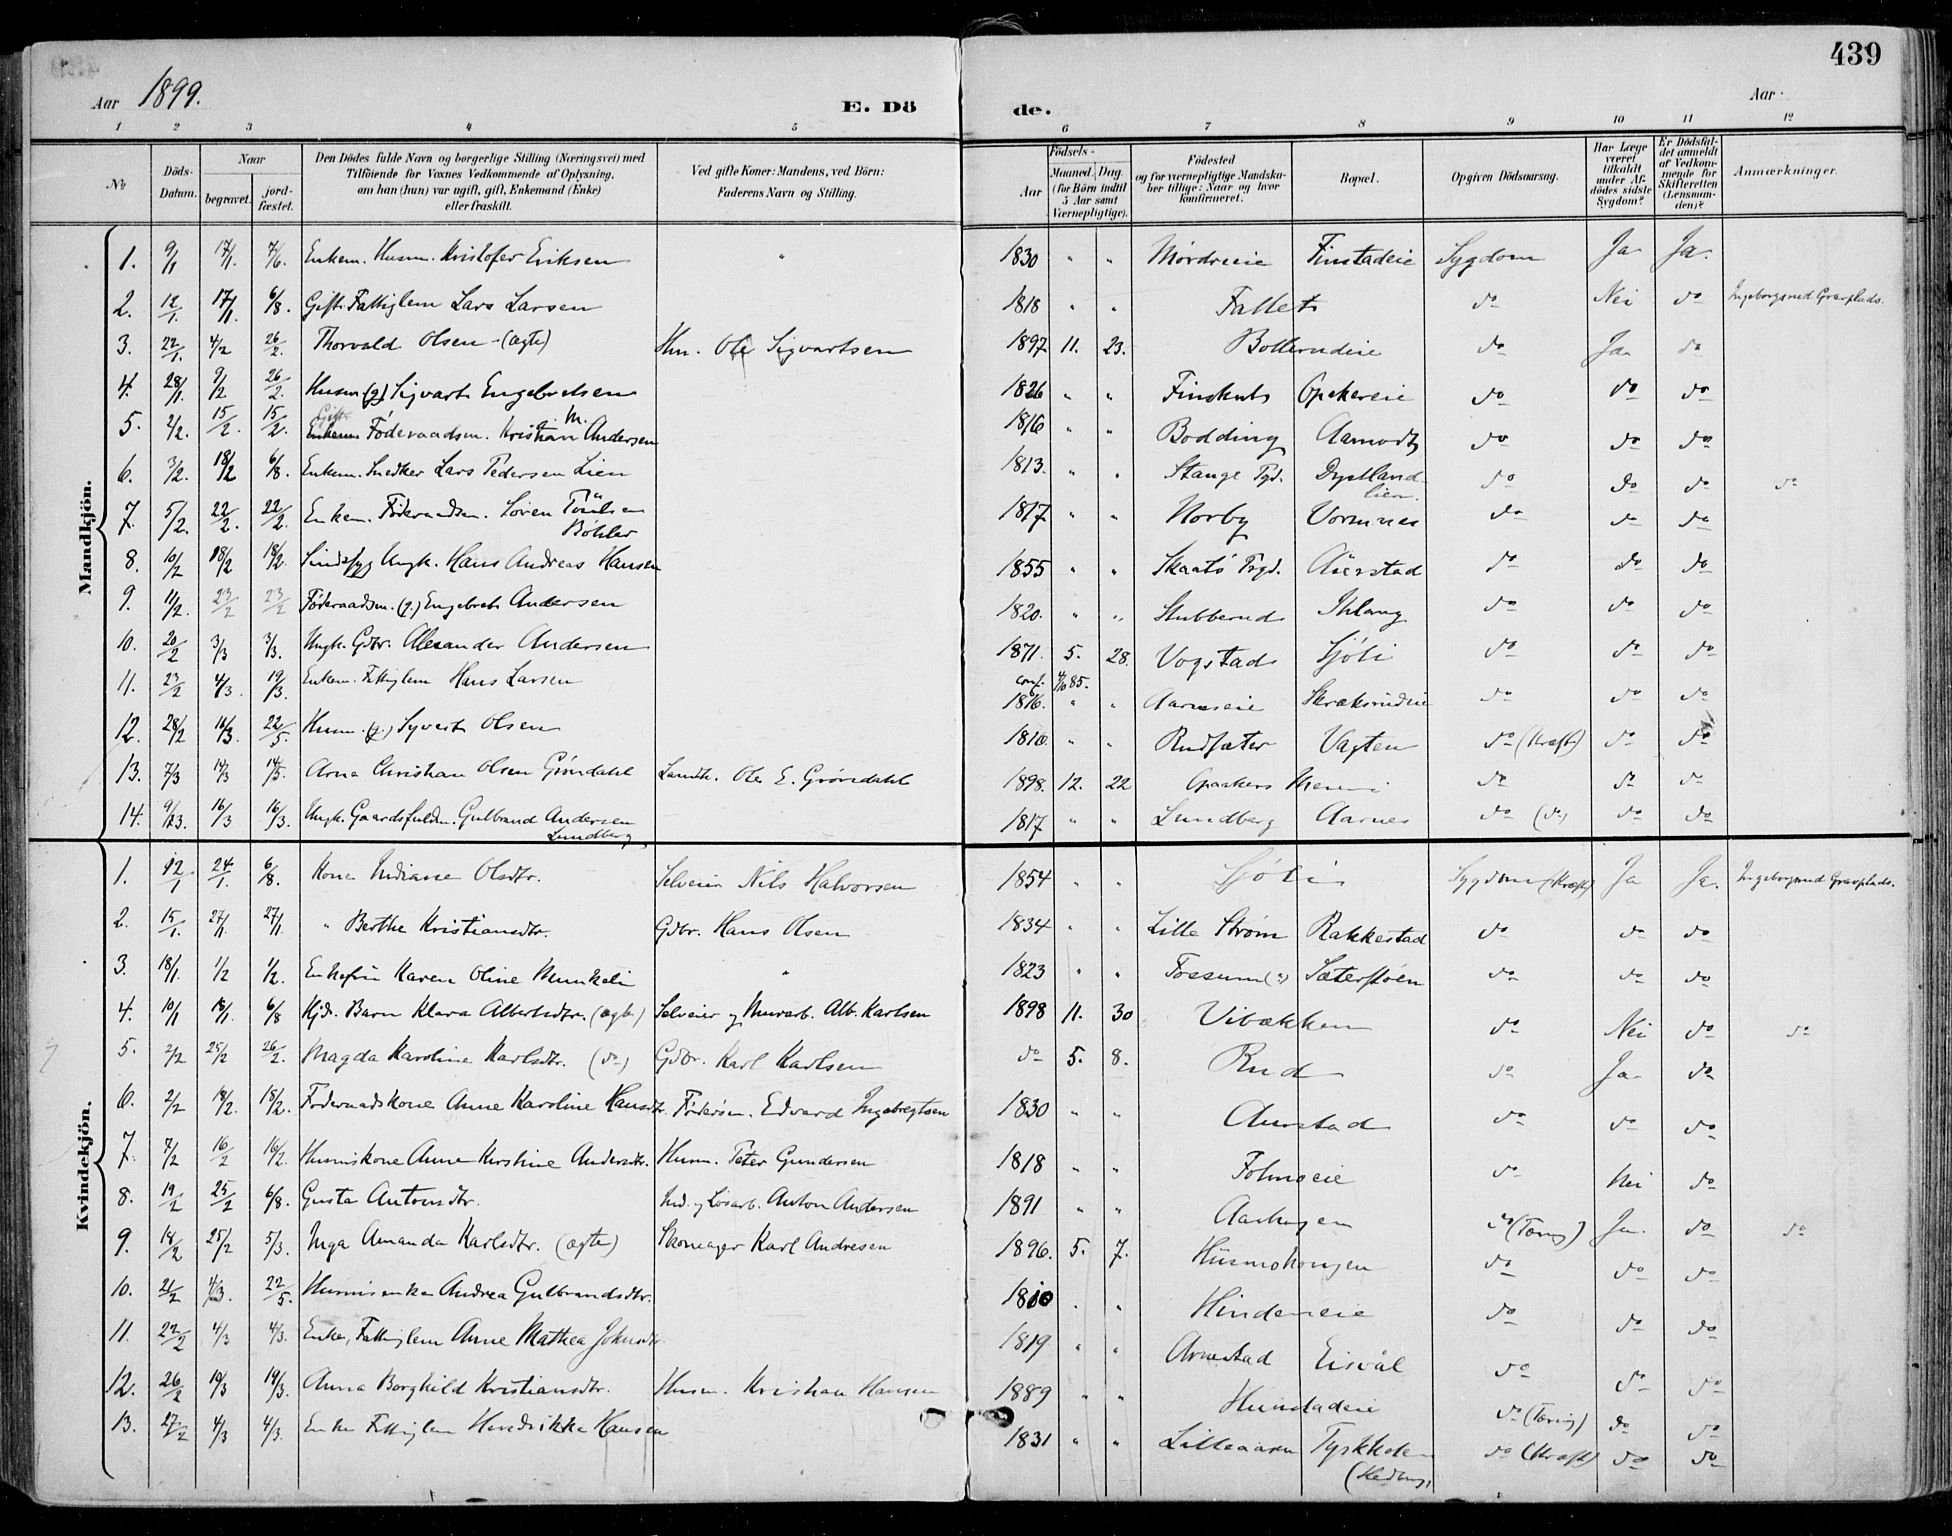 439
Aar 1899. E. Dö de. Aar
1 2 3 4 5 6 7 8 9 10 11 12
№ Döds-Datum. Naar begravet. jordfæstet. Den Dödes fulde Navn og borgerlige Stilling (Næringsvei) med Tilföiende for Voxnes Vedkommende af Oplysning, om han (hun) var ugift, gift, Enkemand (Enke) eller fraskilt. Ved gifte Koner: Mandens, ved Börn: Faderens Navn og Stilling. Födsels- Aar Maaned. Dag. (for Börn indtil 5 Aar samt Værnepligtige). Födested og for værnepligtige Mandskaber tillige: Naar og hvor konfirmeret. Bopæl. Opgiven Dödsaarsag. Har Læge været tilkaldt under Afdödes sidste Sygdom? Er Dödsfaldet anmeldt af Vedkommende for Skifteretten (Lensmanden)? Anmærkninger.
Mandkjön.
1. 9/1 17/1. 7/6. Enkem. Husm. Kristofer Eriksen " 1830 " " Mordreeie Finstadeie Sygdom Ja Ja.
2. 12/1. 17/1. 6/8. Gift Fattiglem Lars Larsen 1818 " " Fallet do Nei do Ingeborgsrud Gravplads.
3. 22/1. 4/2 26/2. Thorvald Olsen (ægte) Hm. Ole Sigvartsen 1897 11. 23. Bollerudeie do Ja do
4. 28/1. 9/2 26/2. Husm (g.) Sigvart Engebretsen 1826 " " Finskut Opakereie do do do
5. 2/2. 15/2. 15/2. Gift Føderaadsm. Kristian M. Andersen 1816 " " Bodding Aamodt do do do
6. 3/2. 18/2 6/8. Enkem. Snedker Lars Pedersen Lien 1813. " " Stange Pgd. Dystlandlien. do do do do
7. 5/2. 22/2. 22/2. Enkem. Føderaadsm. Soren Bøhler 1817 " " Norby Vormnes do do do
8. 10/2 18/2 18/2. Sindssyg Ungk. Hans Andreas Hansen 1855 " " Skaatø Prgd. Auerstad do do do
9. 11/2. 23/2 23/2 Føderaadsm. (g.) Engebret Andersen 1820. " " Stubberud Ihlang do do do
10. 20/2 3/3 3/3. Ungk. Gdbr. Alexander Andersen 1871. 5. 28. Vogstad Sjøli do do do
conf. 4/10 85.
11. 23/2 4/3. 19/3. Enkem. Fattiglem Hans Larsen 1816. " " Aarneseie Skræksrudeie do do do
12. 28/2 16/3. 22/5. Husm. (g.) Syvert Olsen 1810. " " Rudsæter Vagten do (Kræft) do do
13. 7/3 14/3 14/5. Arne Christian Olsen Grøndahl Landh. Ole E. Grøndahl 1898. 12. 22 do do do
14. 9/3. 16/3 16/3. Ungk. Gaardsfuldm. Gulbrand Andersen Lundberg 1817 " " Lundberg Aarnes do (do) do do
Kvindekjön.
1. 12/1 24/1. 6/8. Kone Indiane Olsdtr. Selveier Nils Halvorsen 1854 " " Sjøli Sygdom (Kræft) Ja Ja. Ingeborgsrud Gravplads.
2. 15/1. 27/1 27/1. " Berthe Kristiansdtr. Gdbr. Hans Olsen 1834 " " Lille Strøm Rakkestad do do do
3. 18/1 1/2 1/2. Enkefru Karen Oline Munkeli " 1823 " " Fossum (?) Sæterstøen do do do
4. 10/1 18/1. 6/8 Hjd. Barn Klara Albertsdtr. (ægte) Selveier og Murarb. Alb. Karlsen 1898 11. 30 Vibækken do Nei do do
5. 2/2 25/2 26/2. Magda Karoline Karlsdtr. (do) Gdbr. Karl Karlsen do 5. 8. Rud do Ja do
6. 2/2 18/2. 18/2. Føderaadskone Anne Karoline Hansdtr. Edvard Ingebregtsen 1830 " " Aurstad do do do
7. 7/2 16/2 16/2. Husmskone Anne Kirstine Andersdtr. Husm. Peter Gundersen 1818 " " Folmoeie do Nei do
8. 19/2 25/2 6/8. Gusta Antonsdtr. Ind. og Løsarb. Anton Andersen 1891 " " Aashagen do (Tæring) Ja. do do
9. 18/2 25/2 5/3. Inga Amanda Karlsdtr. (ægte) Skomager Karl Andresen 1896. 5. 7. Husmohougen do do do
10. 21/2 4/3. 22/5. Husmsenke Andrea Gulbrandsdtr. 1810 " " Hindeneie do do do
11. 22/2 4/3 4/3. Enke, Fattiglem Anne Mathea Johnsdtr. 1819 " " Arnestad Eisvål do do do
12. 26/2 19/3 19/3. Anna Borghild Kristiansdtr. Husm. Kristian Hansen 1889 " " Hunstadeie do (Tæring) do do
13. 27/2 4/3 4/3. Enke Fattiglem Hendrikke Hansen 1831 " " Lilleaasen do (Kræft) do do